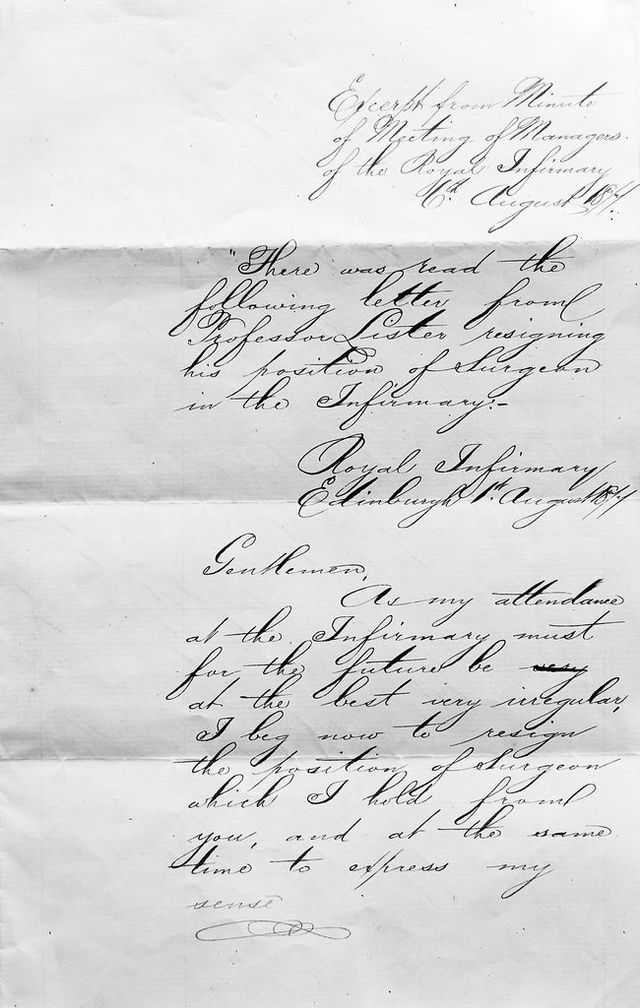 Excerpt from Minute
of Meeting of Managers
of the Royal Infirmary
6th August 1877.
"There was read the
following letter from
Professor Lister resigning
his position of Surgeon
in the Infirmary:-
Royal Infirmary
Edinburgh 1st August 1877
Gentlemen,
As my attendance
at the Infirmary must
for the future be very
at the best very irregular,
I beg now to resign
the position of Surgeon
which I hold from
you, and at the same
time to express my
sense